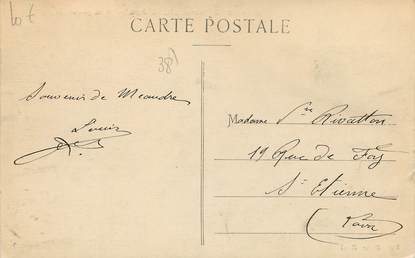 Lot
CARTE POSTALE
38
Souvenir de Meaudre
Louis
Madame Vve Rivatton
19 Rue de Foy
St Etienne
(Loire